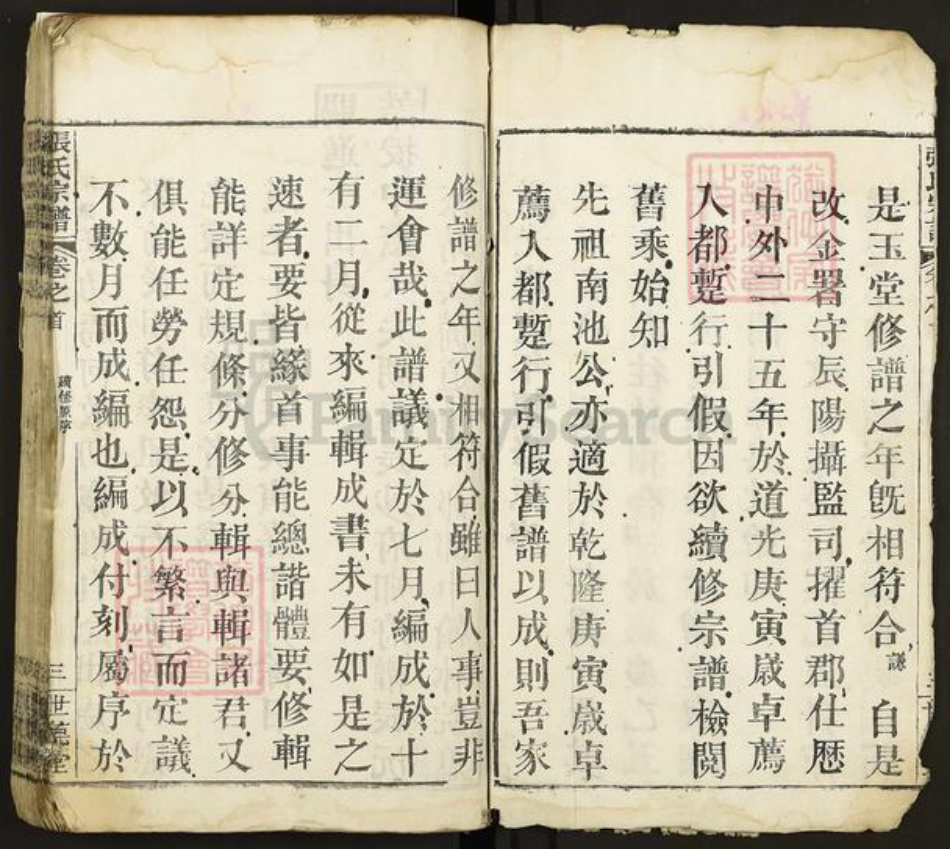 是玉堂修譜之年旣相符合謙 自是
改金署守辰陽攝監司擢首郡仕歷
中外二十五年於道光庚寅歲卓薦
入都蹔行引假因欲續修宗譜檢閱
舊乘始知
先祖南池公亦適於乾隆庚寅歲卓
薦入都蹔行引假舊譜以成則吾家
修譜之年又相符合雖曰人事豈非
運會哉此譜議定於七月編成於十
有二月從來編輯成書未有如是之
速者要皆緣首事能總諧體要修輯
能詳定規條分修分輯與輯諸君又
俱能任勞任怨是以不繁言而定議
不數月而成編也編成付刻屬序於
張氏宗譜 卷之首 三 世
FamilySearch